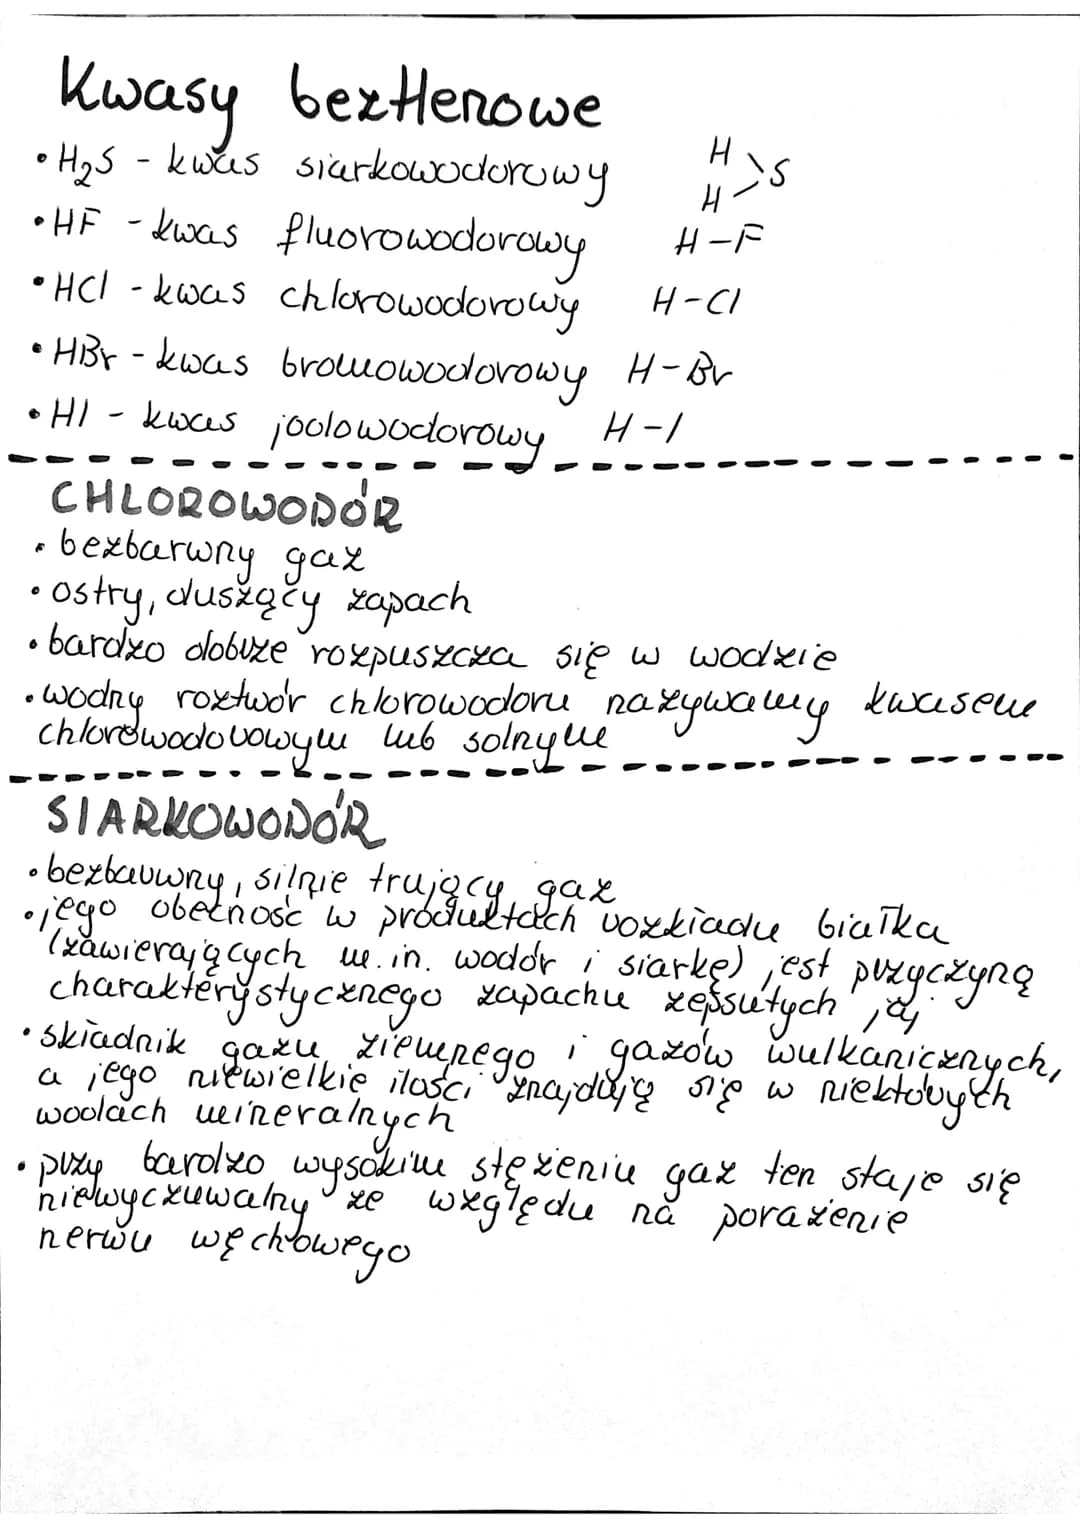 Kwasy beztlenowe
• H₂S - kwas siarkowodorowy H H > S
• HF - kwas fluorowodorowy H-F
• HCl - kwas chlorowodorowy H-Cl
• HBr - kwas bromowodorowy H-Br
• HI - kwas jodowodorowy H-I
CHLOROWODÓR
• bezbarwny gaz
• ostry, duszący zapach
• bardzo dobrze rozpuszcza się w wodzie
• wodny roztwór chlorowodoru nazywamy kwasem
chlorowodorowym lub solnym
SIARKOWODÓR
• bezbarwny, silnie trujący gaz
• jego obecność w produktach rozkładu białka
(zawierających m.in. wodór i siarkę) jest przyczyną
charakterystycznego zapachu zepsutych jaj
• składnik gazu ziemnego i gazów wulkanicznych,
a jego niewielkie ilości znajdują się w niektórych
wodach mineralnych
• przy bardzo wysokim stężeniu gaz ten staje się
niewyczuwalny ze względu na porażenie
nerwu węchowego